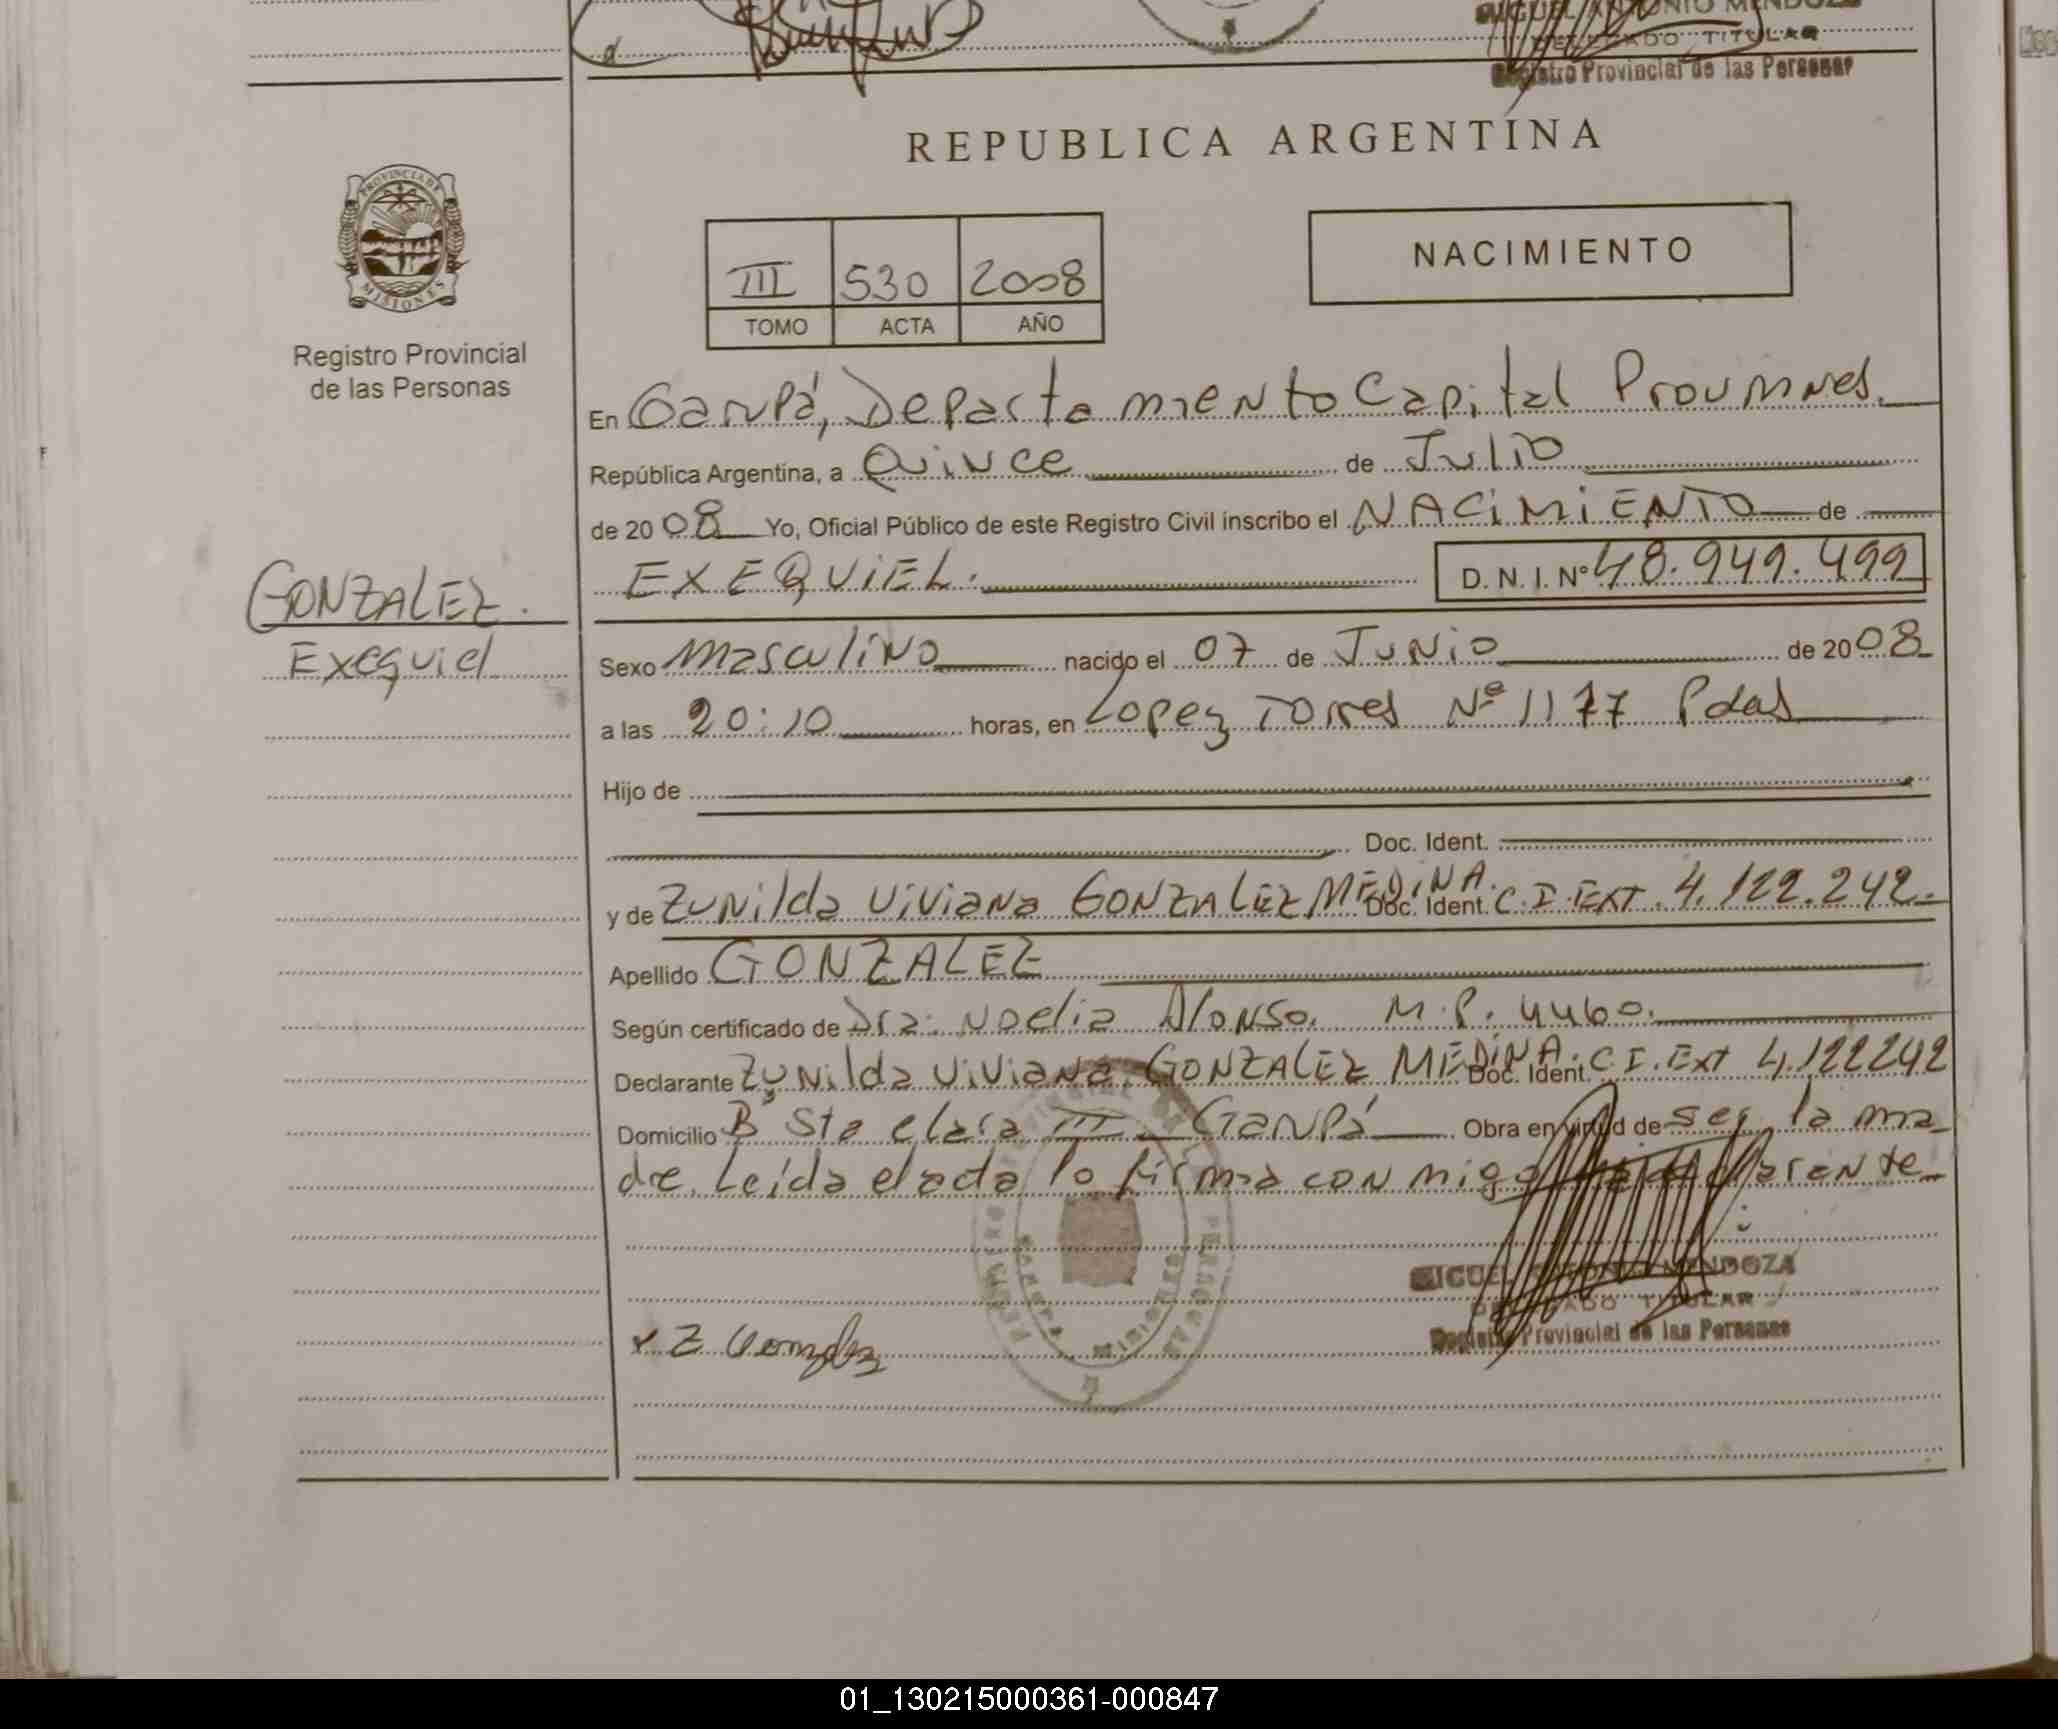 MIGUEL ANTONIO MENDOZA
DELEGADO TITULAR
Registro Provincial de las Personas
PROVINCIA DE
MISIONES
Registro Provincial
de las Personas
REPUBLICA ARGENTINA
III 530 2008
TOMO ACTA AÑO
NACIMIENTO
En Garupá, Departamento Capital Prov. Mnes.
República Argentina, a Quince de Julio
de 2008 Yo, Oficial Público de este Registro Civil inscribo el NACIMIENTO de
EXEQUIEL. D.N.I. Nº 48.949.499
GONZALEZ.
Exequiel
Sexo Masculino nacido el 07 de Junio de 2008
a las 20:10 horas, en Lopez Torres Nº 1177 Pdas
Hijo de
Doc. Ident.
y de Zunilda Viviana GONZALEZ MEDINA. Doc. Ident. C.I. EXT. 4.122.242.
Apellido GONZALEZ
Según certificado de Dra. Noelia Alonso. M.P. 4460.
Declarante Zunilda Viviana GONZALEZ MEDINA. Doc. Ident. C.I. Ext 4.122242
Domicilio Bº Sta Clara III - Garupá Obra en virtud de ser la ma
dre. Leída el acta lo firma con migo la declarante
x Z Gonzalez
MIGUEL ANTONIO MENDOZA
DELEGADO TITULAR
Registro Provincial de las Personas
01_130215000361-000847